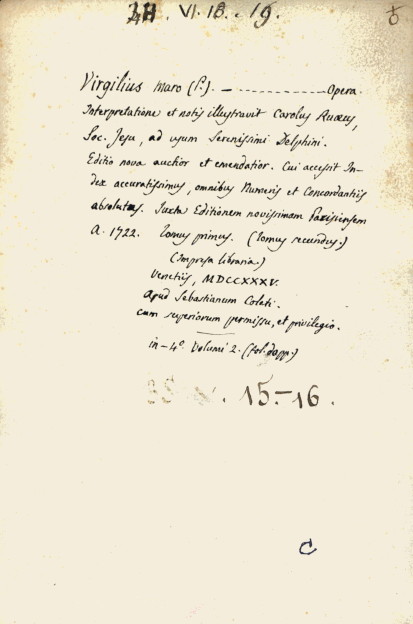 VI. 18. 19.
Virgilius Maro (P.). — - - - - - - - - - - - Opera.
Interpretatione et notis illustravit Carolus Ruæus,
Soc. Jesu, ad usum Serenissimi Delphini.
Editio nova auctior et emendatior. Cui accessit In-
dex accuratissimus, omnibus Numeris et Concordantiis
absolutus. Juxta Editionem novissimam Parisiensem
A. 1722. Tomus primus. (Tomus secundus.)
(Impresa libraria.)
Venetiis, MDCCXXXV.
Apud Sebastianum Coleti.
cum superiorum permissu, et privilegio.
in-4º. Volumi 2. (fol. dapp.)
15.-16.
C